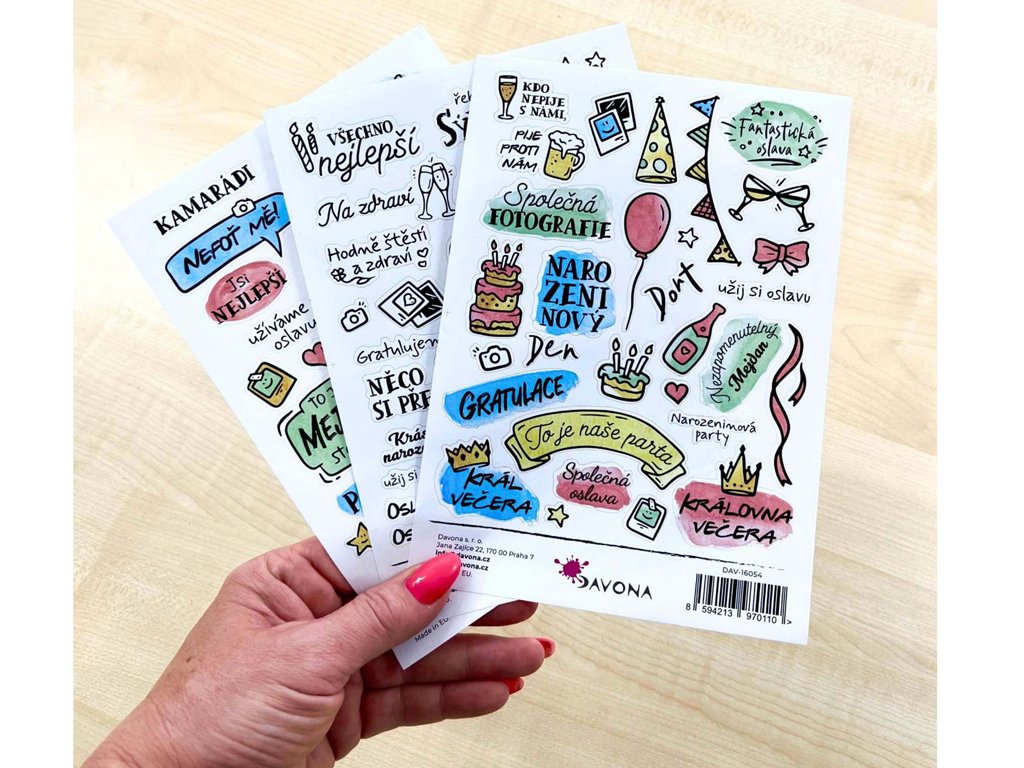 KAMARÁDI
NEFOŤ MĚ!
Jsi
NEJLEPŠÍ
užíváme
oslavu
VŠECHNO
nejlepší
Na zdraví
Hodně štěstí
a zdraví
Gratulujem
NĚCO
SI PŘE
užij si
Made in EU.
KDO
NEPIJE
S NÁMI,
PIJE
PROTI
NÁM
Fantastická
oslava
Společná
FOTOGRAFIE
NARO
ZENI
NOVÝ
Dort
užij si oslavu
Den
Nezapomenutelný
Mejdan
GRATULACE
Narozeninová
party
To je naše parta
KRÁL
VEČERA
Společná
oslava
KRÁLOVNA
VEČERA
Davona s. r. o.
Jana Zajíce 22, 170 00 Praha 7
DAVONA
DAV-16054
8 594213 970110 >